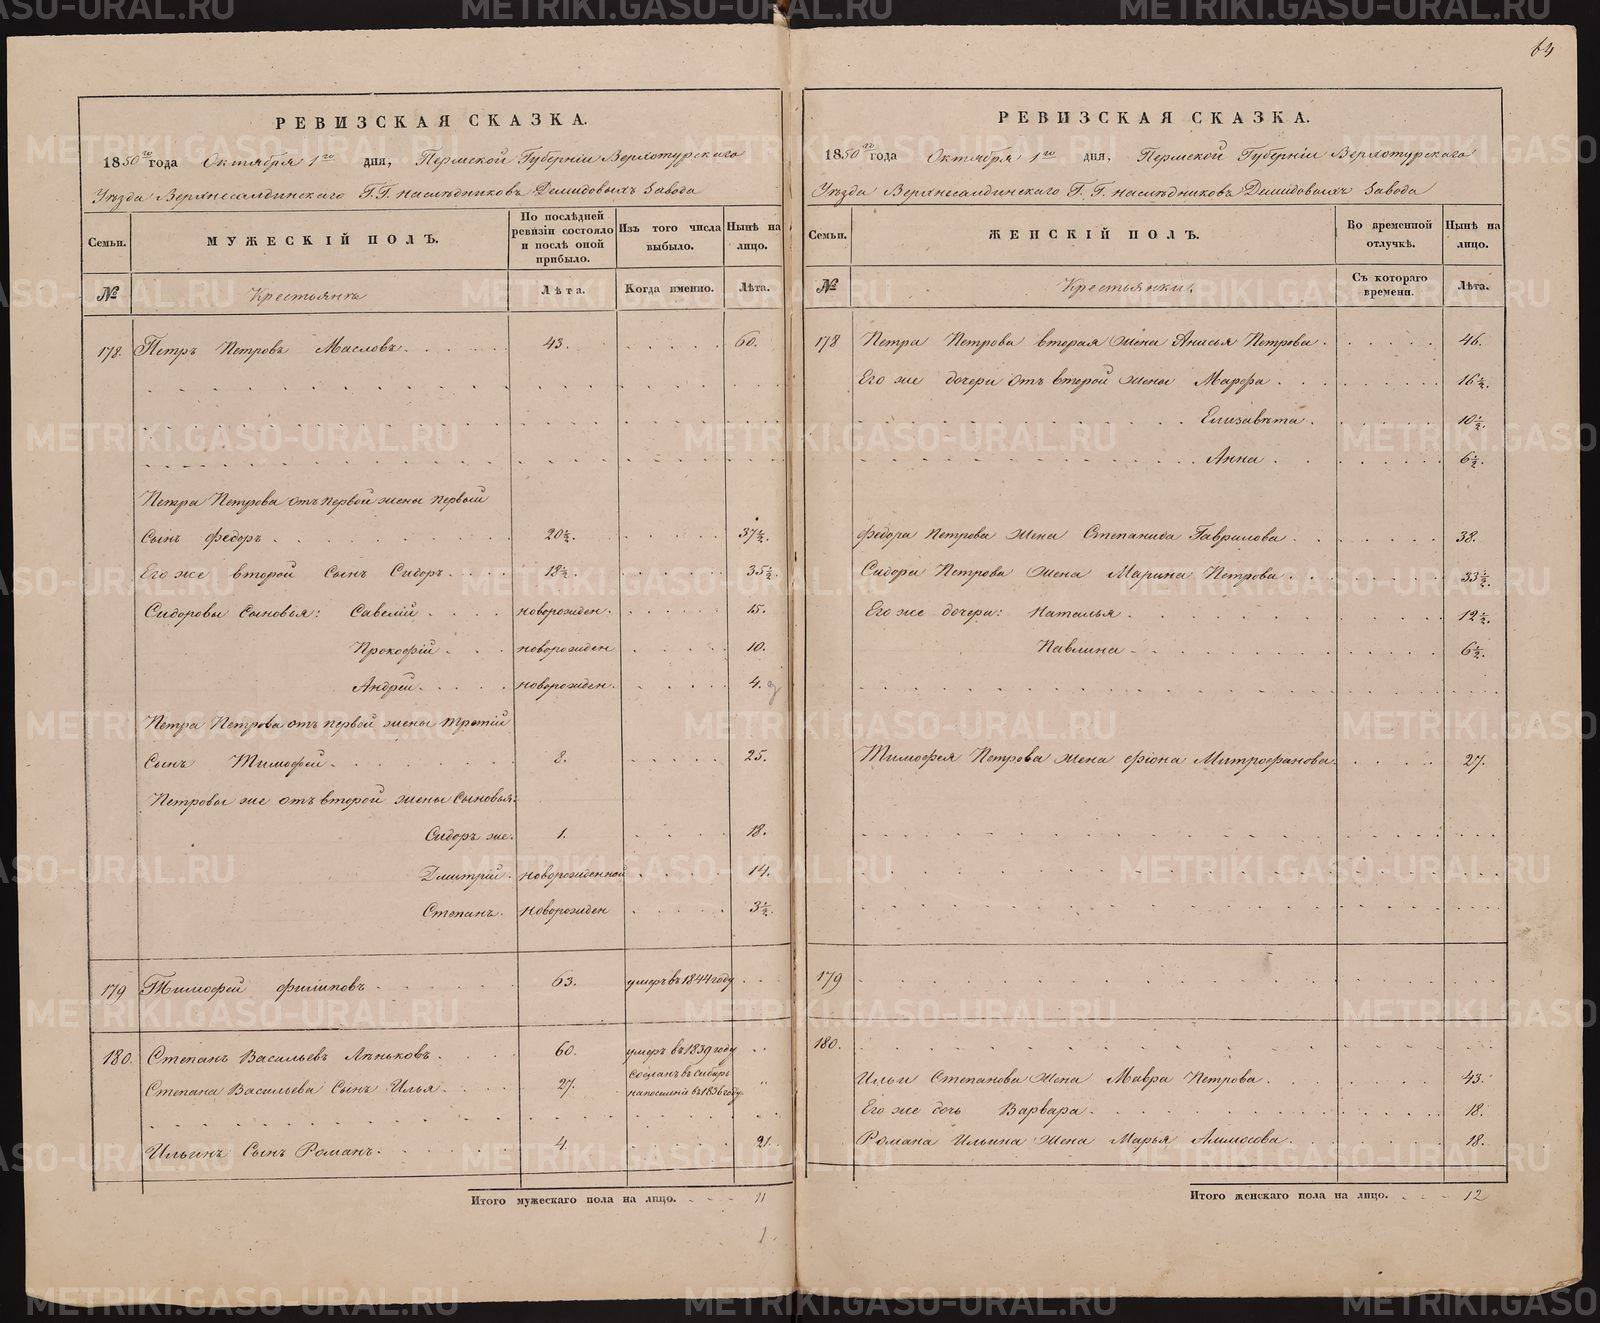 64
РЕВИЗСКАЯ СКАЗКА.
1850го года Октября 1го дня, Пермской Губерніи Верхотурскаго
Уѣзда Верхнесалдинскаго Г.Г. наслѣдниковъ Демидовыхъ Завода
Семьи.
МУЖЕСКІЙ ПОЛЪ.
По послѣдней ревизіи состояло и послѣ оной прибыло.
Изъ того числа выбыло.
Нынѣ на лицо.
№
Крестьянъ
Лѣта.
Когда именно.
Лѣта.
178. Петръ Петровъ Масловъ 43. 60.
Петра Петрова отъ первой жены первый
Сынъ Федоръ 20½. 37½.
Его же второй Сынъ Сидоръ 18½. 35½.
Сидоровы Сыновья: Савелій новорожден. 15.
Прокофій новорожден 10.
Андрей новорожден. 4.
Петра Петрова отъ первой жены третій
Сынъ Тимофей 8. 25.
Петровы же отъ второй жены Сыновья:
Сидоръ же. 1. 18.
Дмитрій новорожденной 14.
Степанъ. новорожден 3½.
179 Тимофей Филиповъ 63. умеръ въ 1844 году
180. Степанъ Васильевъ Лѣньковъ 60. умеръ въ 1839 году
Степана Васильева Сынъ Илья 27. сосланъ въ Сибирь
на поселеніе въ 1836 году.
Ильинъ Сынъ Романъ 4. 21.
Итого мужескаго пола на лицо. 11
РЕВИЗСКАЯ СКАЗКА.
1850го года Октября 1го дня, Пермской Губерніи Верхотурскаго
Уѣзда Верхнесалдинскаго Г.Г. наслѣдниковъ Демидовыхъ Завода
Семьи.
ЖЕНСКІЙ ПОЛЪ.
Во временной отлучкѣ.
Нынѣ на лицо.
№
Крестьянки.
Съ котораго времени.
Лѣта.
178 Петра Петрова вторая жена Анисья Петрова 46.
Его же дочери отъ второй жены Марфа 16½.
Елизавѣта 10½.
Анна 6½.
Федора Петрова жена Степанида Гаврилова 38.
Сидора Петрова жена Марина Петрова 33½.
Его же дочери: Наталья 12½.
Павлина 6½.
Тимофея Петрова жена Фіона Митрофанова 27.
179
180.
Ильи Степанова жена Мавра Петрова 43.
Его же дочь Варвара 18.
Романа Ильина жена Марья Амосова 18.
Итого женскаго пола на лицо. 12
METRIKI.GASO-URAL.RU